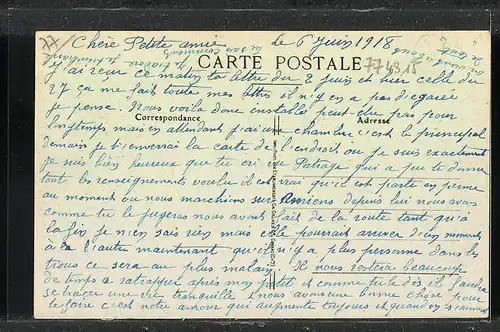 77
Chère Petite amie le 6 Juin 1918
774315
j'ai reçu ce matin ta lettre du 2 juin et hier celle du
CARTE POSTALE
27 ça me fait toute mes lettres il n'y en a pas d'egarée
je pense. Nous voila donc installé peut être pas pour
Correspondance
Adresse
longtemps mais en attendant j'ai une chambre c'est le principal
demain je t'enverrai la carte de l'endroit ou je suis exactement
je suis bien heureux que tu ai vu qui a pu te donner
tout les renseignements voulu il est vrai qu'il est parti en perme
au moment ou nous marchions sur Amiens depuis lui nous avons
comme tu le jugeras nous avons fait de la route tant qu'à
la fin je n'en sais rien mais elle pourrait arriver d'un moment
à la l'autre maintenant qu'il n'y a plus personne dans les
trous ce sera au plus malain. Il nous restera beaucoup
de temps a rattrapper après mon petit et comme tu le dis il faudra
se tracer une vie tranquille nous avons une bonne chose pour
le faire c'est notre amour qui augmente toujours et quand on s'aime